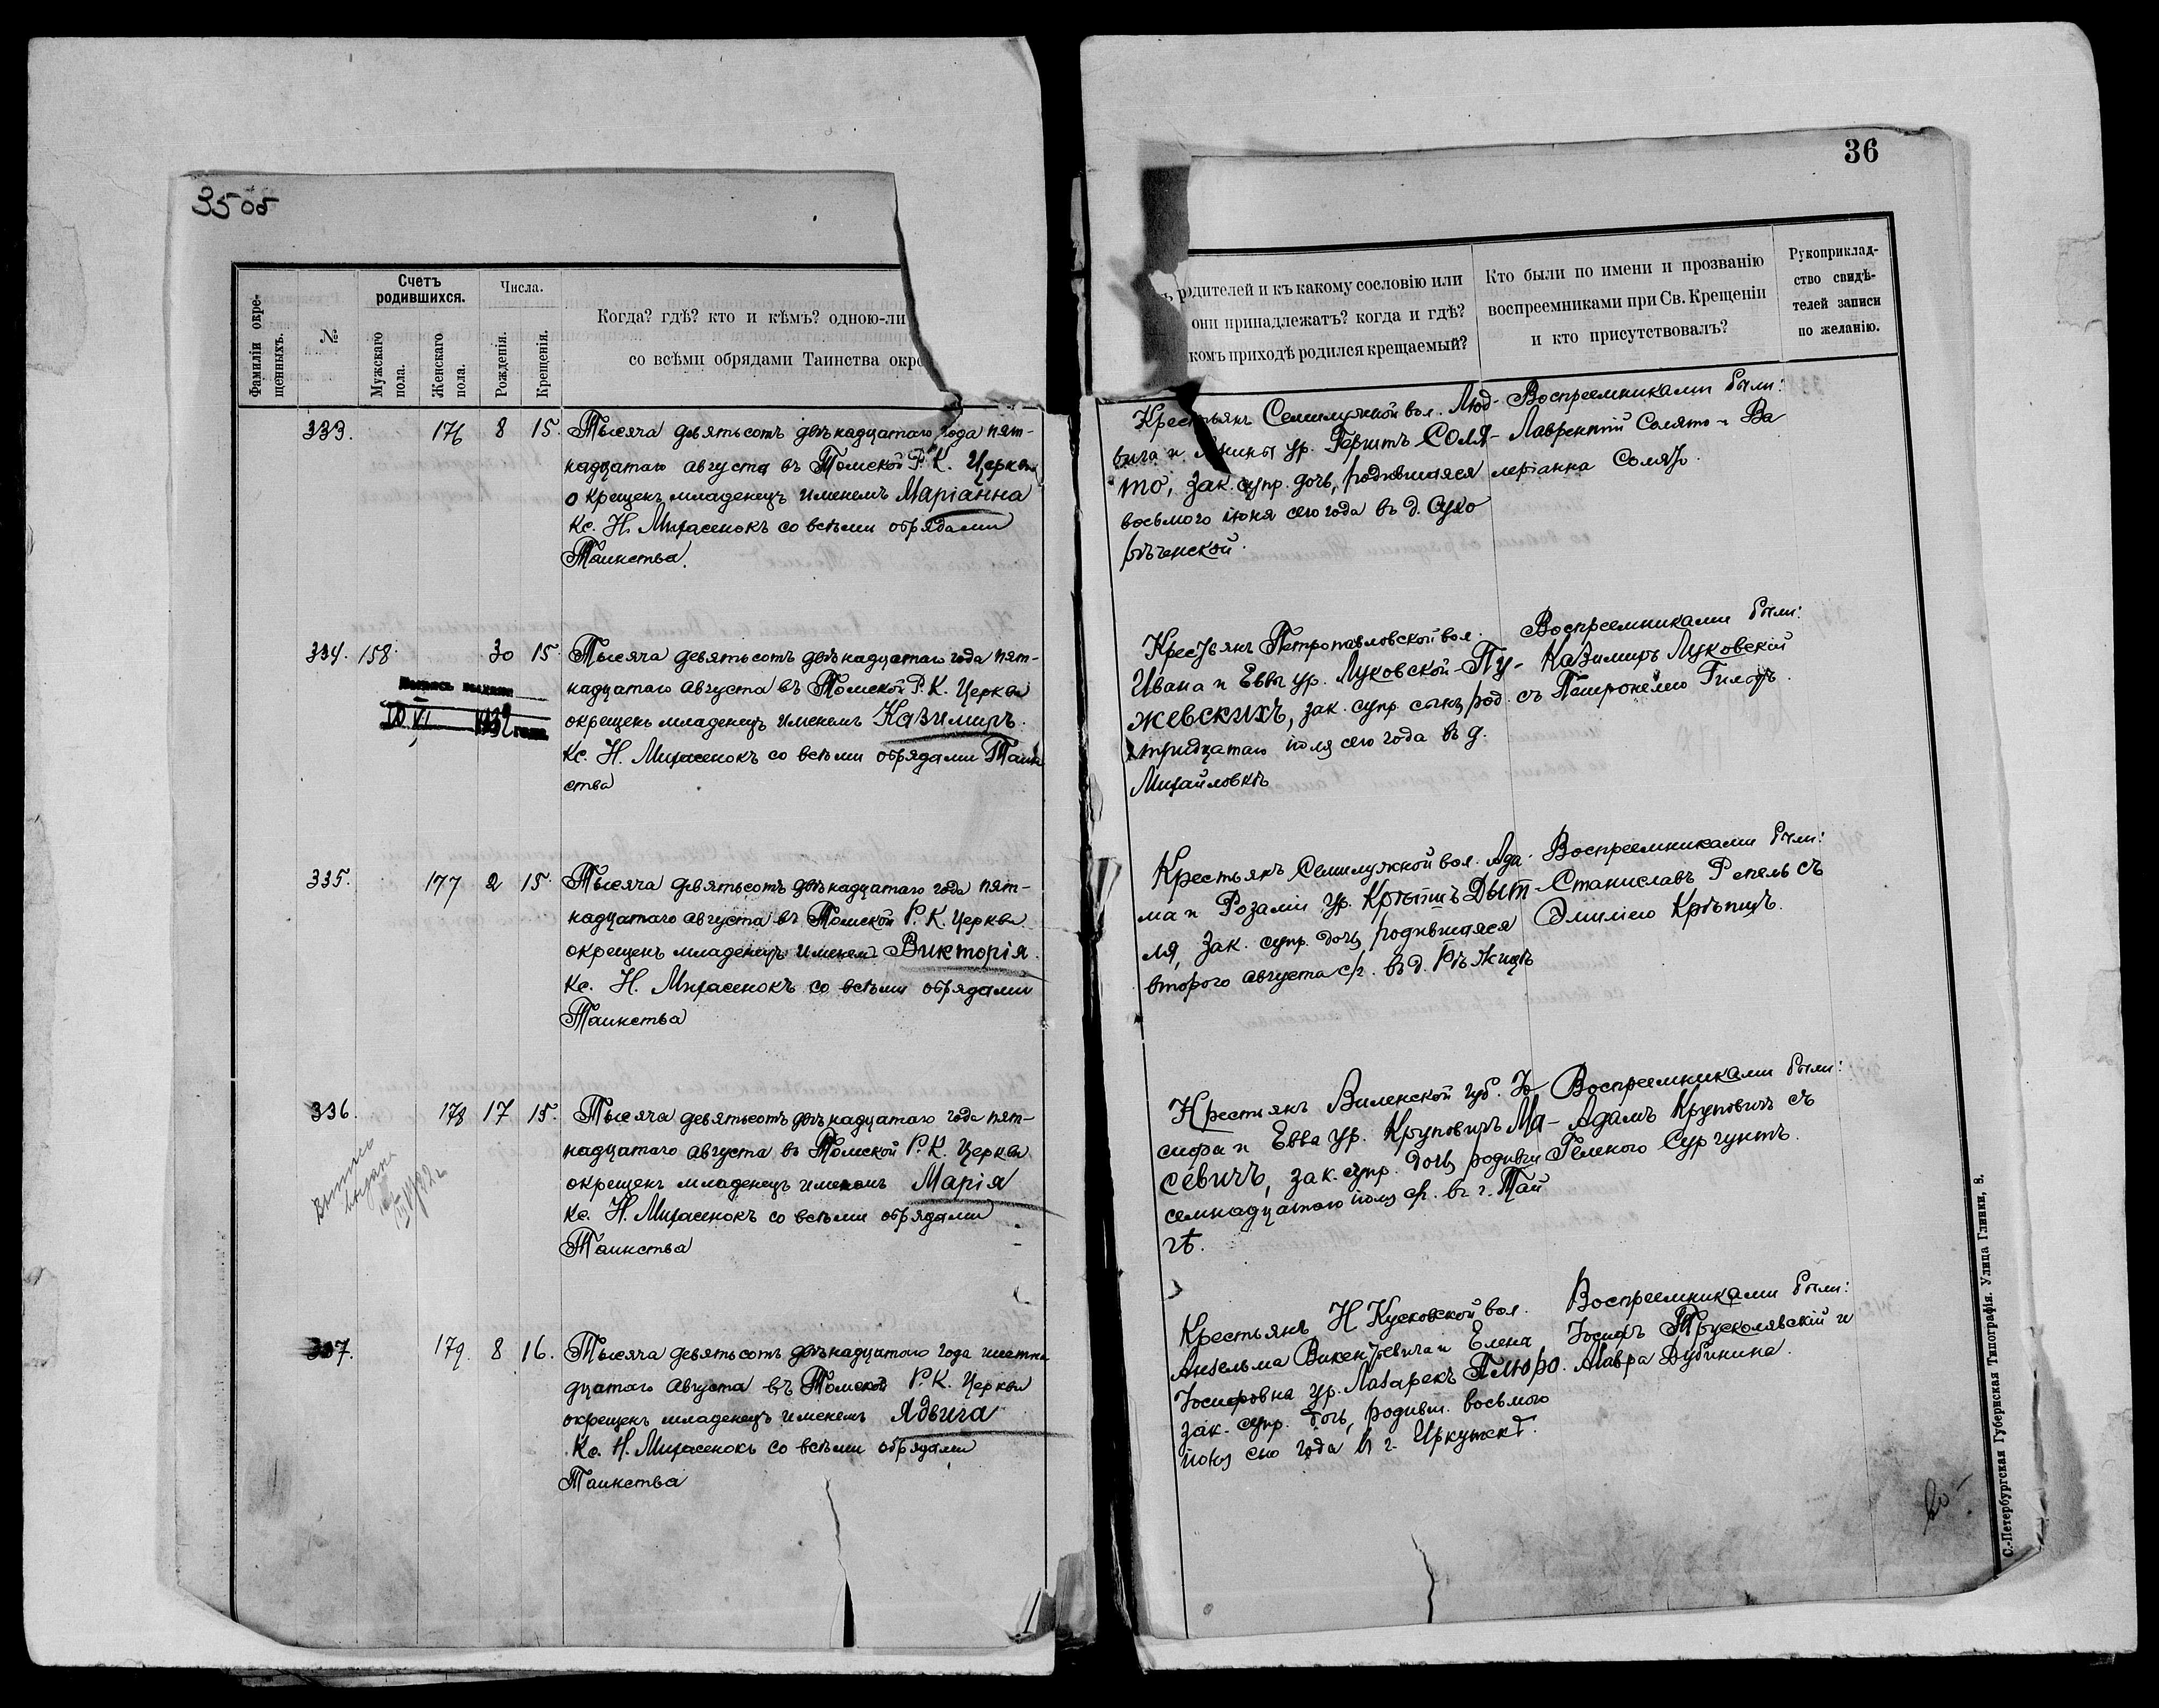 35 об
36
Фамиліи окре-
щенныхъ.
№
Счетъ
родившихся.
Мужскаго
пола.
Женскаго
пола.
Числа.
Рожденія.
Крещенія.
Когда? гдѣ? кто и кѣмъ? одною-ли
со всѣми обрядами Таинства окре
родителей и къ какому сословію или
они принадлежатъ? когда и гдѣ?
комъ приходѣ родился крещаемый?
Кто были по имени и прозванію
воспреемниками при Св. Крещеніи
и кто присутствовалъ?
Рукоприклад-
ство свидѣ-
телей записи
по желанію.
333. 176 8 15.
Тысяча девятьсотъ двѣнадцатаго года пят-
надцатаго августа въ Томской Р. К. Церкви
окрещенъ младенецъ именемъ Маріанна
Кс. Н. Михасенокъ со всѣми обрядами
Таинства.
Крестьянъ Семилужной вол. Люд-
вига и Анны ур. Герштъ Соля-
то, зак. супр. дочь, родившаяся
восьмого іюня сего года въ д. Сухо
рѣченской.
Воспреемниками были:
Лаврентій Солято и Ва
леріанна Солято.
334. 158. 30 15.
Тысяча девятьсотъ двѣнадцатаго года пят-
надцатаго августа въ Томской Р. К. Церкви
окрещенъ младенецъ именемъ Казимиръ.
Кс. Н. Михасенокъ со всѣми обрядами Таин
ства
года
Крестьянъ Петропавловской вол.
Ивана и Еввы ур. Луковской-Пу-
жевскихъ, зак. супр. сынъ, род.
тридцатаго іюля сего года въ д.
Михайловкѣ
Воспреемниками были:
Казимиръ Луковскій
съ Петронелею
335. 177 2 15.
Тысяча девятьсотъ двѣнадцатаго года пят-
надцатаго августа въ Томской Р. К. Церкви
окрещенъ младенецъ именем Викторія.
Кс. Н. Михасенокъ со всѣми обрядами
Таинства
Крестьянъ Семилужной вол. Ада-
ма и Розаліи ур. Дыт-
ля, зак. супр. дочь, родившаяся
второго августа с/г. въ д.
Воспреемниками были:
Станиславъ Репель съ
Эмиліею
336. 178 17 15.
Тысяча девятьсотъ двѣнадцатаго года пят-
надцатаго августа въ Томской Р. К. Церкви
окрещенъ младенецъ именемъ Марія
Кс. Н. Михасенокъ со всѣми обрядами
Таинства
Крестьянъ Виленской губ. Іо-
сифа и Евва ур. Круповичъ Ма-
севичъ, зак. супр. дочь, родивш
семнадцатаго іюля с/г. въ г. Тай
гѣ.
Воспреемниками были:
Адамъ Круповичъ съ
Еленою Сургунтъ.
337. 179. 8 16.
Тысяча девятьсотъ двѣнадцатаго года шестна
дцатаго Августа въ Томской Р. К. Церкви
окрещенъ младенецъ именемъ Ядвига
Кс. Н. Михасенокъ со всѣми обрядами
Таинства
Крестьянъ Н Кусковской вол.
Анзельма Викентьевича и Елена
Іосифовна ур. Лазарекъ Плюро.
зак. супр. дочь, родивш. восьмого
іюня сего года въ г. Иркутскѣ.
Воспреемниками были:
Іосифъ Трусколявскій и
Мавра Дубинина.
С.-Петербургская Губернская Типографія. Улица Глинки, 8.